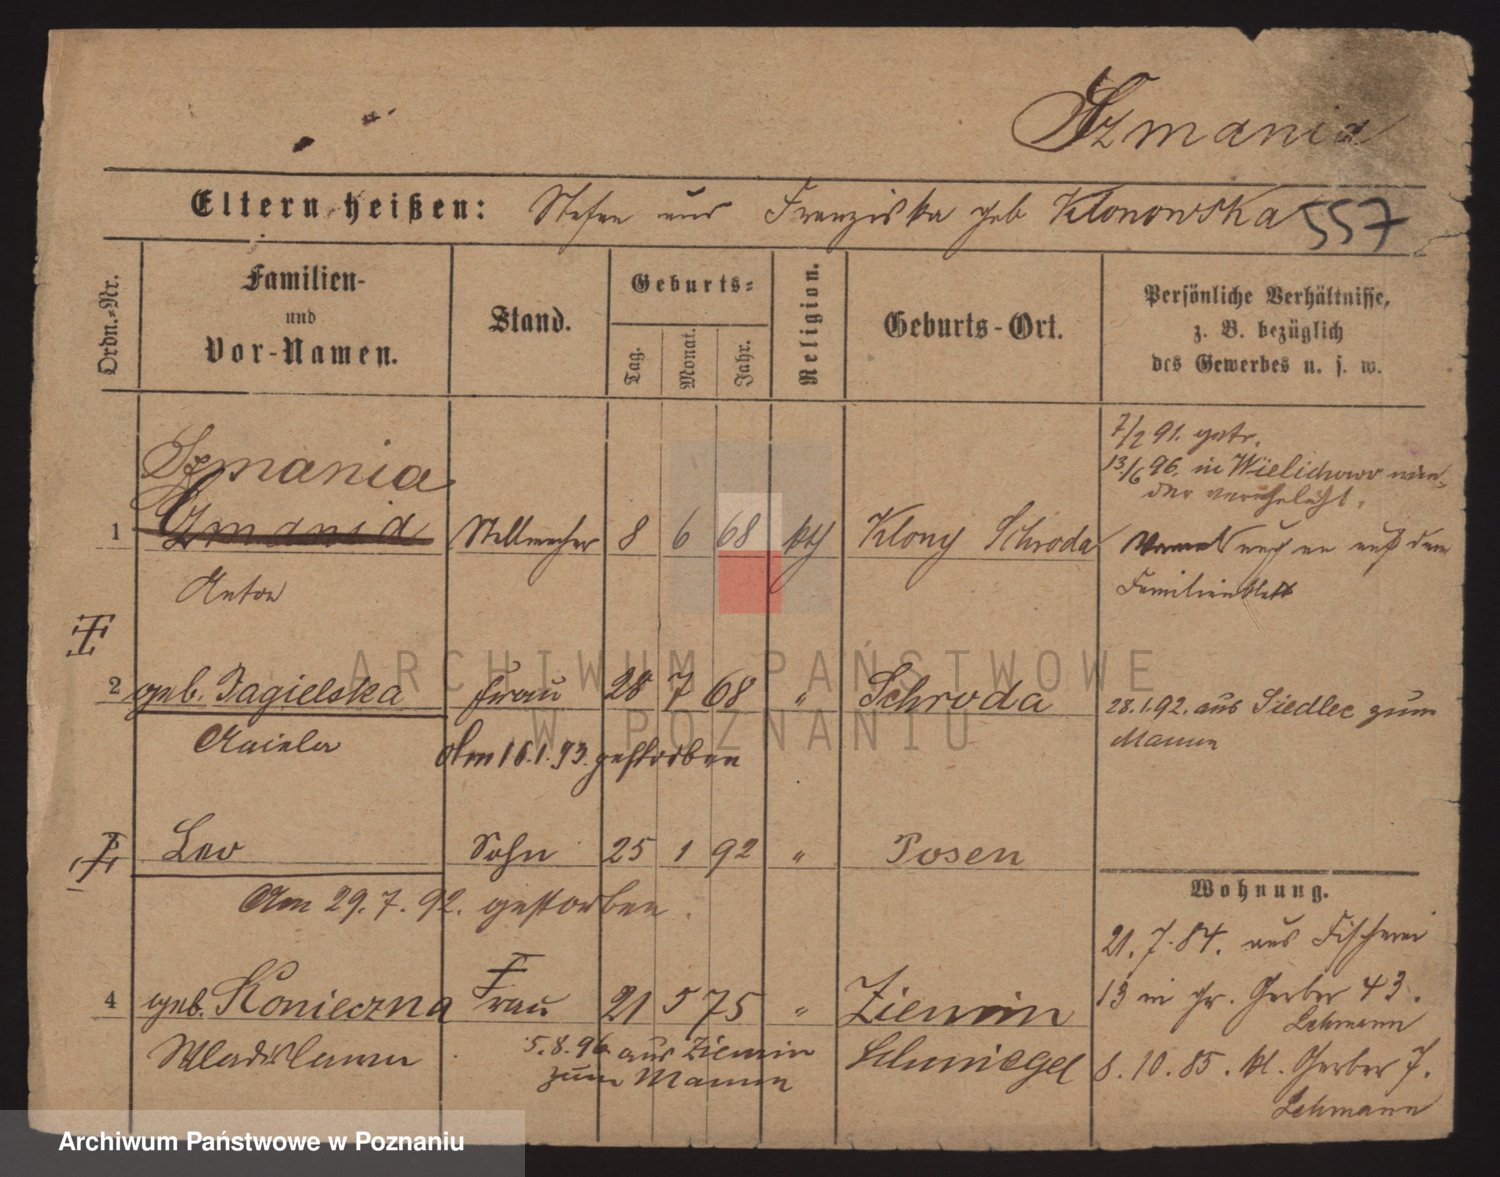 Szmania
Eltern heißen: Stefan und Franziska geb Klonowska 557
Ordn.-Nr.
Familien-
und
Vor-Namen.
Stand.
Geburts-
Tag. Monat. Jahr.
Religion.
Geburts-Ort.
Persönliche Verhältnisse,
z. B. bezüglich
des Gewerbes u. s. w.
7/2 91. getr.
13./6 96. in Wielichowo wie-
der verehelicht.
Szmania
1 Zmania Stellmacher 8 6 68 kth Klony Schroda
Anton
auf dem
Familienblatt
2 geb. Jagielska Frau 28 7 68 " Schroda
28.1.92. aus Siedlec zum
Manne
Am 16.1.93. gestorben
Leo Sohn 25 1 92 " Posen
Am 29.7.92. gestorben.
Wohnung.
21.7.84. aus Fischerei
13 in gr. Gerber 43.
Lehmann
4 geb. Konieczna Frau 21 5 75 " Ziemin
Wladislawa
5.8.96 aus Ziemin
zum Manne
Schmiegel
8.10.85. kl. Gerber 7.
Lehmann
ARCHIWUM PAŃSTWOWE
W POZNANIU
Archiwum Państwowe w Poznaniu